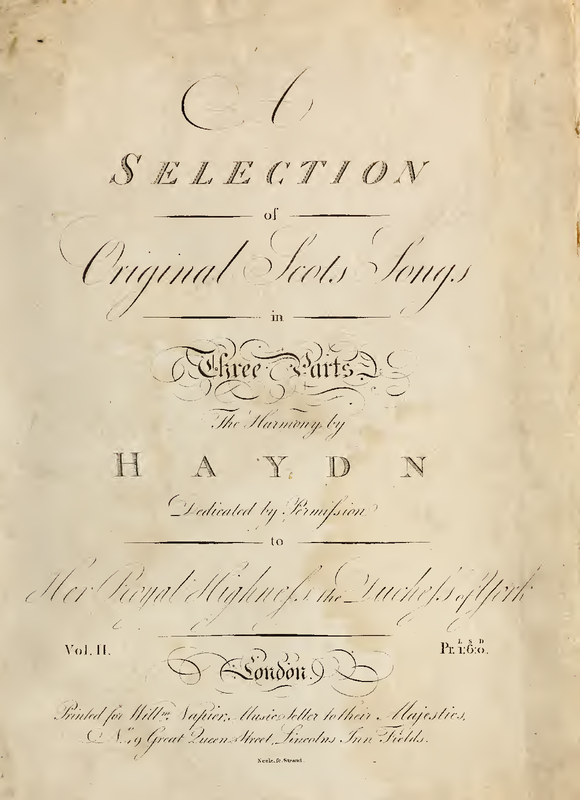 A
SELECTION
of
Original Scots Songs
in
Three Parts
The Harmony by
HAYDN
Dedicated by Permiſsion
to
Her Royal Highneſs the Ducheſs of York
Vol. II.
L S D
Pr. 1:6:0.
London.
Printed for Willm. Napier, Music Seller to their Majesties,
No. 49 Great Queen Street, Lincolns Inn Fields.
Neele, sc. Strand.